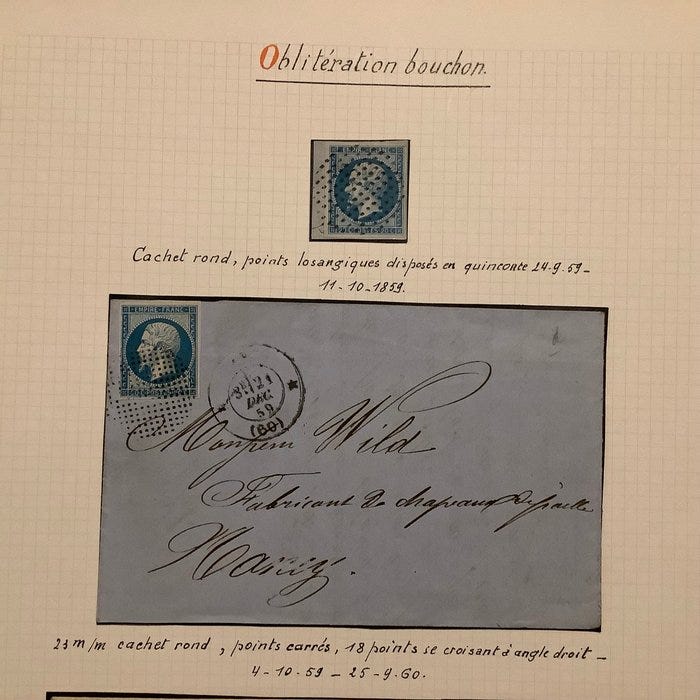 Oblitération bouchon.
EMPIRE FRANC
Cachet rond, points losangiques disposés en quinconte 24-9-59-
11-10-1859.
EMPIRE-FRANC
21
DEC
59
(60)
Wild
Fabricant de chapeaux de paille
Nancy.
23 m/m cachet rond, points carrés, 18 points se croisant à angle droit -
4-10-59 - 25-9-60.